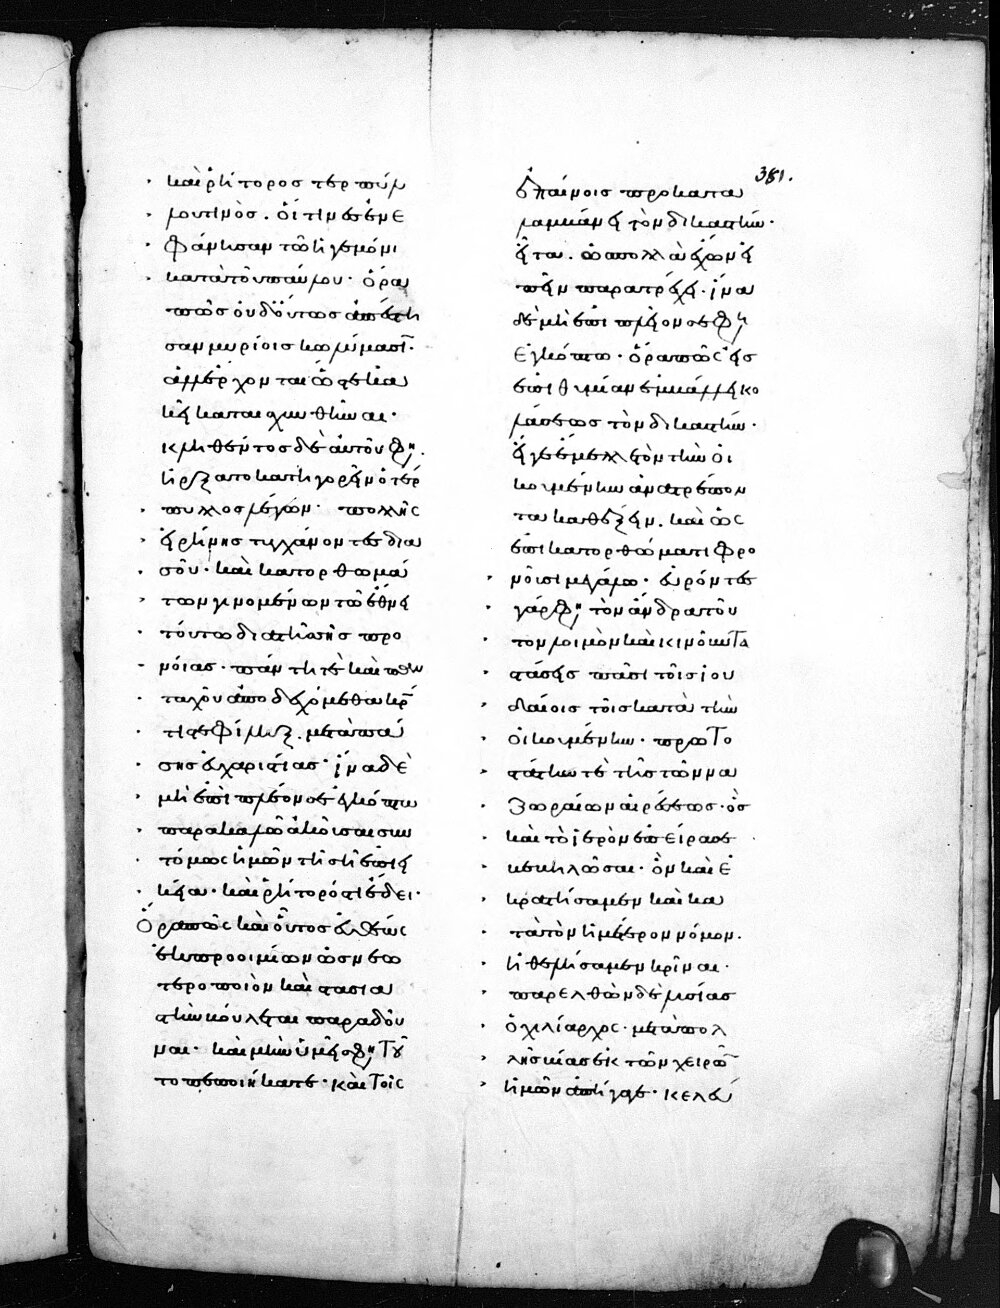 381.
καὶ ῥήτορος τερτύλ
λου τινὸς. οἵτινες ἐνε
φάνισαν τῶ ἡγεμόνι
κατὰ τοῦ παύλου· ὅρα
πῶς οὐδοὕτως ἀπέστη
σαν μυρίοις κωλύμασι·
ἀλλέρχονται ὥστε κα
κεῖ καταισχυνθῆναι·
κληθέντος δὲ αὐτοῦ φη.
ἤρξατο κατηγορεῖν ὁ τέρ
τυλλος λέγων· πολλῆς
εἰρήνης τυγχάνοντες δια
σοῦ· καὶ κατορθωμά
των γινομένων τῶ ἔθνει
τούτω διὰ τῆς σῆς προ
νοίας· πάντη τὲ καὶ παν
ταχοῦ ἀποδεχόμεθα κρά
τιστε φίληξ. μετὰ πά
σης εὐχαριστίας· ἵνα δὲ
μὴ ἐπὶ πλέον σε ἐγκόπτω
παρακαλῶ ἀκοῦσαι συν
τόμως ἡμῶν τῆ σῆ ἐπιει
κεία· καὶ ῥήτορός τι ἔδει·
Ὅρα πῶς καὶ οὗτος εὐθέως
ἐκ προοιμίων ὡς νεω
τεροποιὸν καὶ στασια
στὴν βούλεται παραδοῦ
ναι· καὶ μὴν ὑμεῖς φη τοῦ
το πεποιήκατε· καὶ τοῖς
ἐπαίνοις προκατα
λαμβάνει τὸν δικαστήν·
εἶτα. ὡς πολλὰ ἔχων εἰ
πεῖν παρατρέχει· ἵνα
δὲ μὴ ἐπι πλεῖον σε φη
ἐγκόπτω· ὅρα πῶς εἰς
ἐπιθυμίαν ἐμβάλλει κο
λάσεως τὸν δικαστήν·
εἴγε ἔμελλε τὸν τὴν οἰ
κουμένην ἀνατρέπον
τα καθέξειν. καὶ ὡς
ἐπι κατορθώματι φρο
νοῦσι μεγάλω· εὑρόντες
γάρ φη τὸν ἄνδρα τοῦ
τον λοιμὸν καὶ κινοῦντα
στάσεις πᾶσι τοῖς ἰου
δαίοις τοῖς κατὰ τὴν
οἰκουμένην· πρωτο
στάτην τὲ τῆς τῶν να
ζωραίων αἱρέσεως· ὃς
καὶ τὸ ἱερὸν ἐπείρασε
βεβηλῶσαι· ὃν καὶ ἐ
κρατήσαμεν καὶ κα
τὰ τὸν ἡμέτερον νόμον.
ἠθελήσαμεν κρῖναι·
παρελθὼν δὲ λυσίας
ὁ χιλίαρχος· μετὰ πολ
λῆς βίας ἐκ τῶν χειρῶν
ἡμῶν ἀπήγαγε· κελεύ